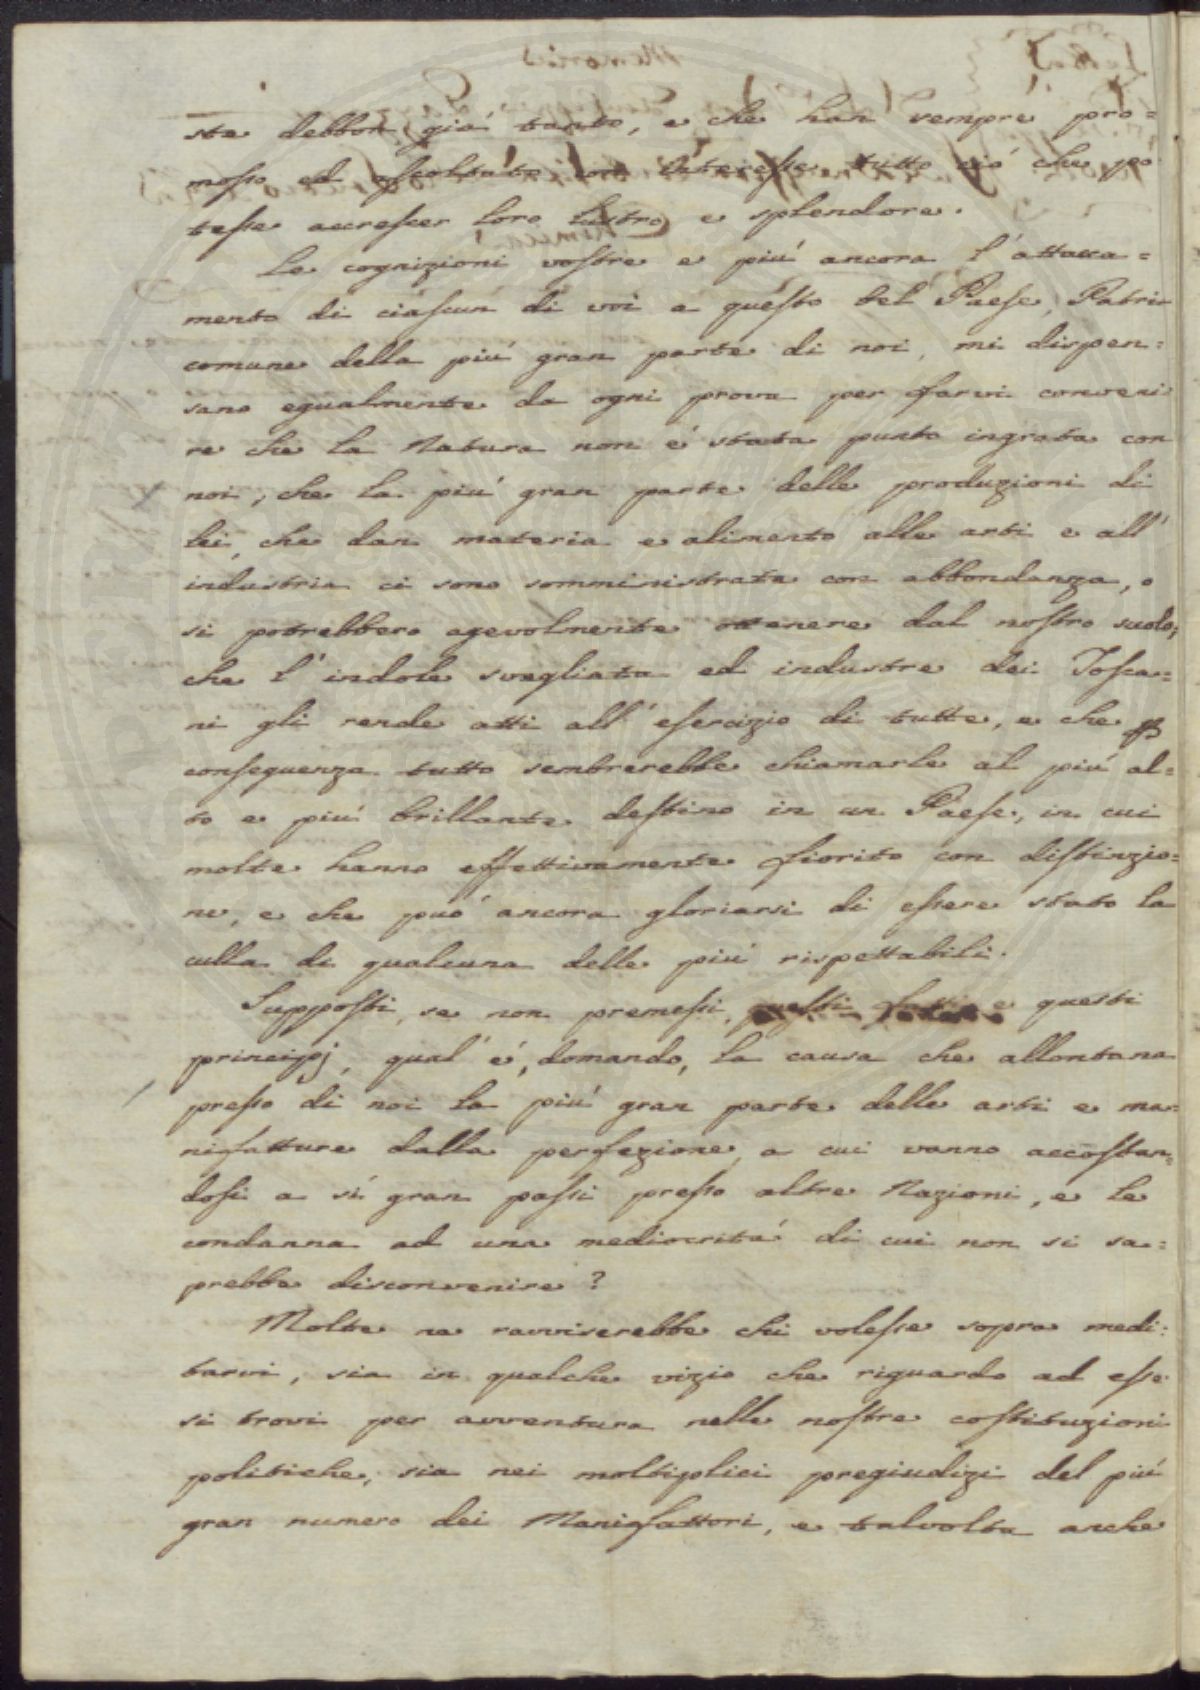 ste debbon giá tanto, e che han sempre pro=
mosso ed ascoltato con interesse tutto ció che po
tesse accrescer loro lustro e splendore.
Le cognizioni vostre e piú ancora l'attacca=
mento di ciascun di voi a questo bel Paese, Patria
comune della piú gran parte di noi, mi dispen=
sano egualmente da ogni prova per farvi conveni
re che la Natura non é stata punto ingrata con
noi; che la piú gran parte delle produzioni di
lei, che dan materia e alimento alle arti e all'
industria ci sono somministrate con abbondanza, o
si potrebbero agevolmente ottenere dal nostro suolo;
che l'indole svegliata ed industre dei Tosca=
ni gli rende atti all'esercizio di tutte, e che p
conseguenza tutto sembrerebbe chiamarle al piú al=
to e piú brillante destino in un Paese, in cui
molte hanno effettivamente fiorito con distinzio=
ne, e che puó ancora gloriarsi di essere stato la
culla di qualcuna delle piú rispettabili.
Supposti, se non premessi, questi fatti e questi
principj, qual'é, domando, la causa che allontana
presso di noi la piú gran parte delle arti e ma=
nifatture dalla perfezione, a cui vanno accostan=
dosi a sí gran passi presso altre Nazioni, e le
condanna ad una mediocritá di cui non si sa=
prebbe disconvenire?
Molte ne ravviserebbe chi volesse sopra medi=
tarvi, sia in qualche vizio che riguardo ad esse
si trovi per avventura nelle nostre costituzioni
politiche; sia nei moltiplici pregiudizi del piú
gran numero dei Manifattori, e talvolta anche